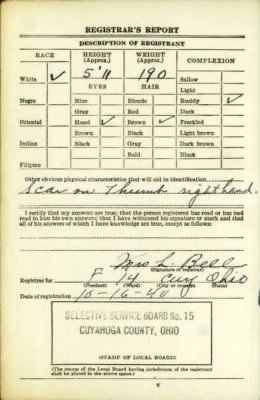 REGISTRAR'S REPORT
DESCRIPTION OF REGISTRANT
RACE HEIGHT (Approx.) WEIGHT (Approx.) COMPLEXION
White ✓ 5' 11 190 Sallow
EYES HAIR Light
Negro Blue Blonde Ruddy ✓
Gray Red Dark
Oriental Hazel ✓ Brown ✓ Freckled
Brown Black Light brown
Indian Black Gray Dark brown
Bald Black
Filipino
Other obvious physical characteristics that will aid in identification
Scar on Thumb right hand.
I certify that my answers are true; that the person registered has read or has had
read to him his own answers; that I have witnessed his signature or mark and that
all of his answers of which I have knowledge are true, except as follows:
Mrs L. Bell
(Signature of registrar)
Registrar for F 14 Cuy Ohio
(Precinct) (Ward) (City or county) (State)
Date of registration 10-16-40
SELECTIVE SERVICE BOARD No. 15
CUYAHOGA COUNTY, OHIO
(STAMP OF LOCAL BOARD)
(The stamp of the Local Board having jurisdiction of the registrant
shall be placed in the above space.)